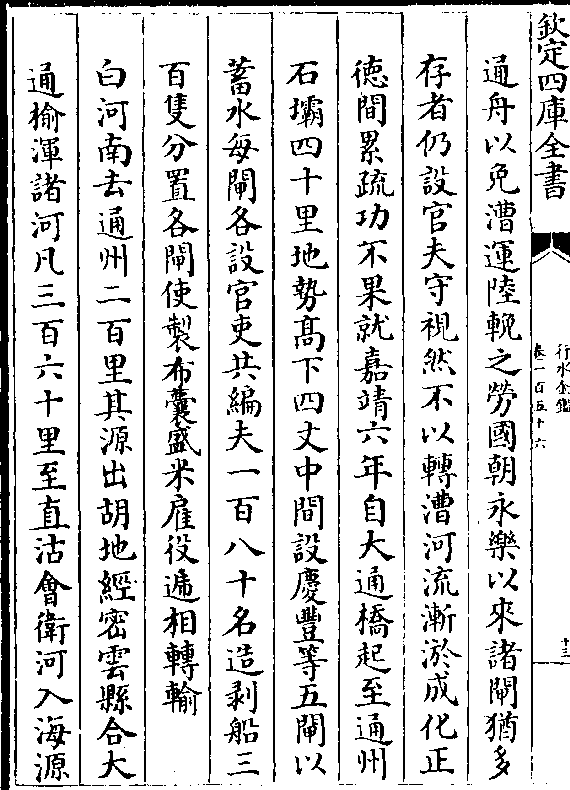 欽定四庫全書
行水金鑑
卷一百五十六
十三
通舟以免漕運陸輓之勞國朝永樂以來諸閘猶多
存者仍設官夫守視然不以轉漕河流漸淤成化正
德間累疏功不果就嘉靖六年自大通橋起至通州
石壩四十里地勢髙下四丈中間設慶豐等五閘以
蓄水每閘各設官吏共編夫一百八十名造剥船三
百隻分置各閘使製布囊盛米雇役遞相轉輸
白河南去通州二百里其源出胡地經密雲縣合大
通榆渾諸河凡三百六十里至直沽會衛河入海源